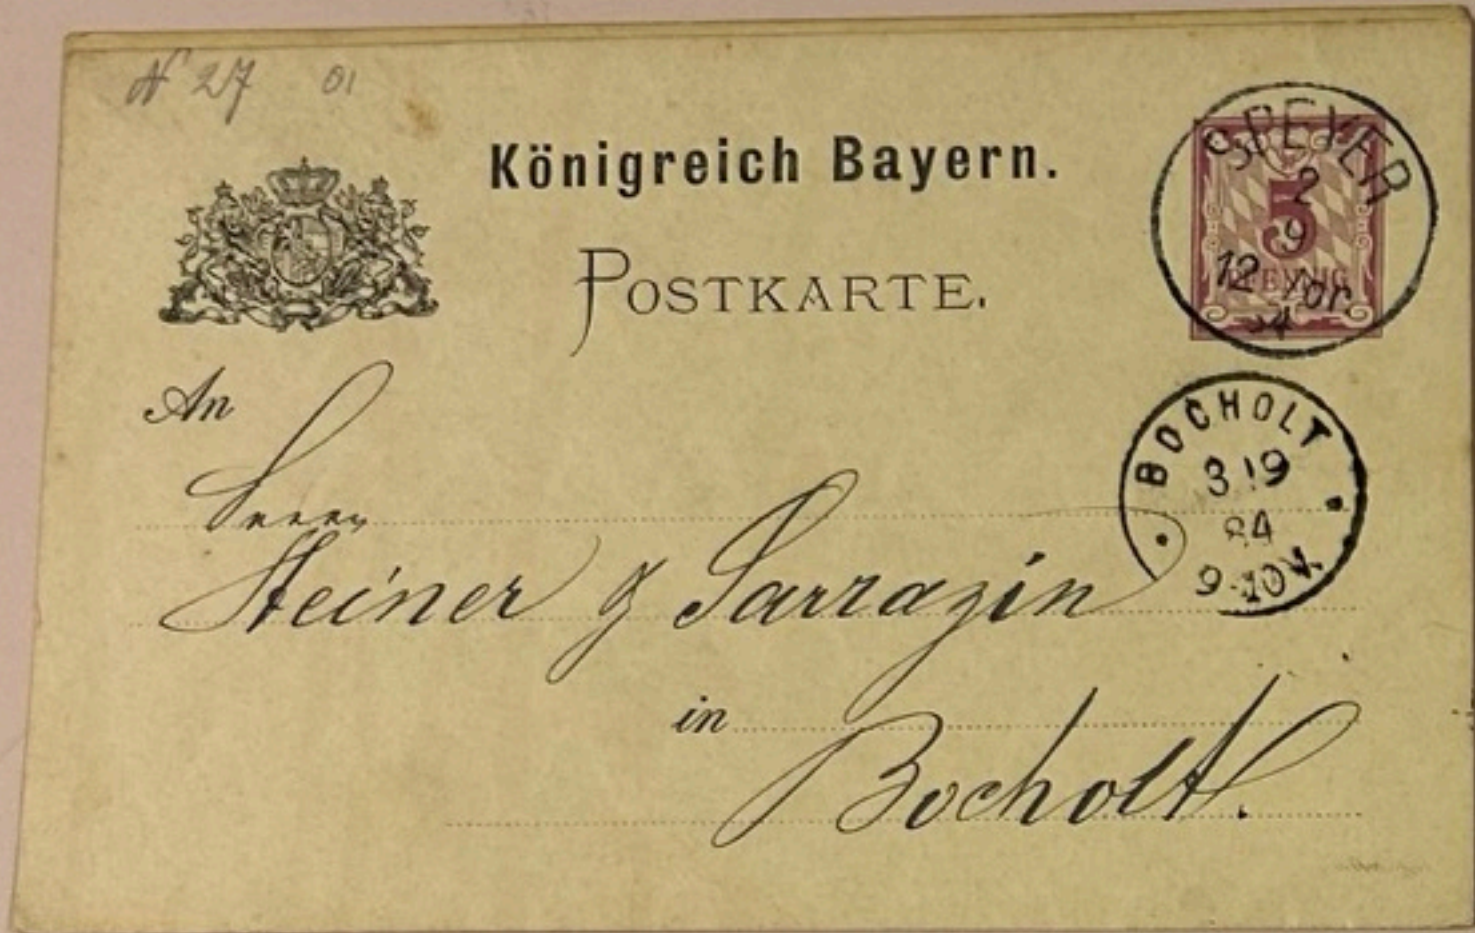 N 27 01
Königreich Bayern.
POSTKARTE.
SPEYER
2
9
12 Vor.
84
5
PFENNIG
An
BOCHOLT
3 19
84
9-10 V.
Herren
Steiner & Sarrazin
in
Bocholt.